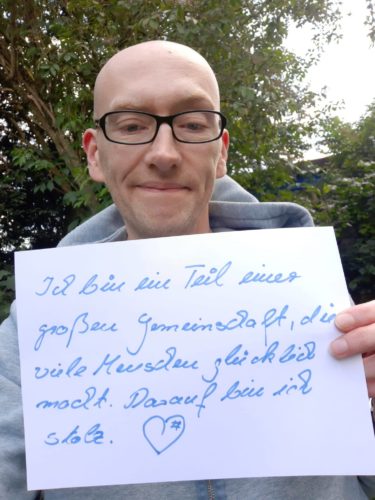 Ich bin ein Teil einer
großen Gemeinschaft, die
viele Menschen glücklich
macht. Darauf bin ich
stolz. #